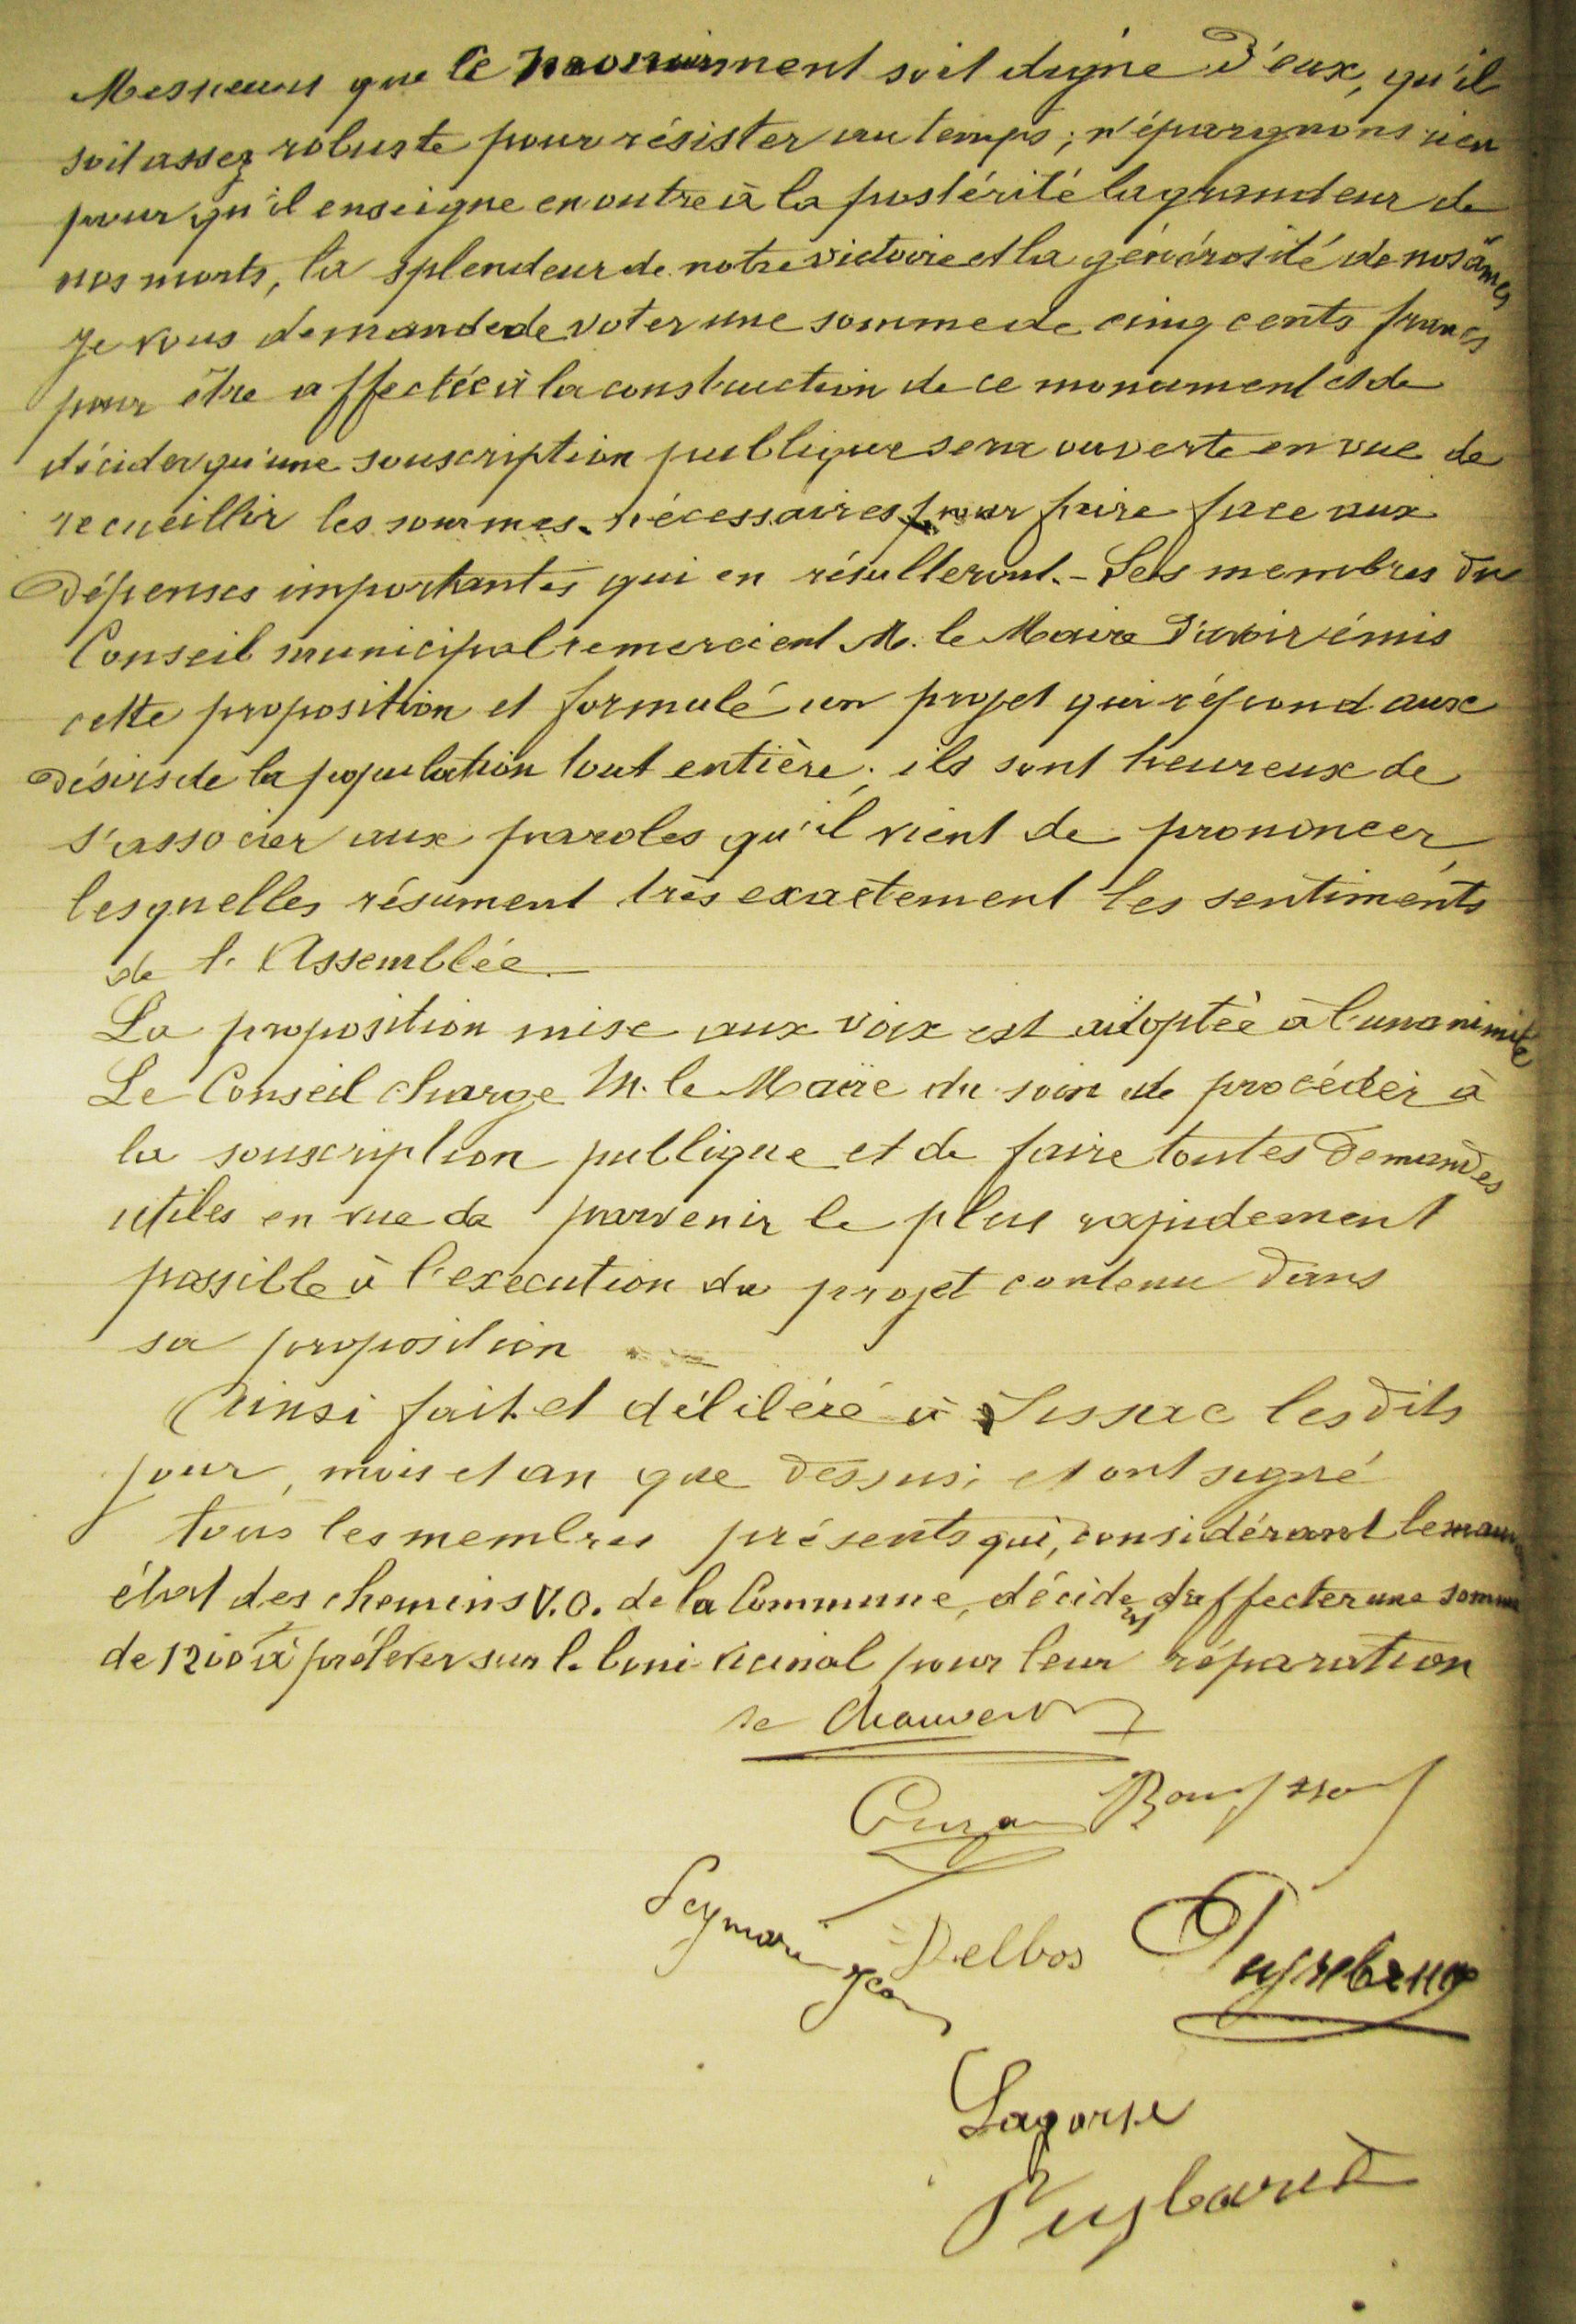 Messieurs que le monument soit digne d'eux, qu'il
soit assez robuste pour résister au temps ; n'épargnons rien
pour qu'il enseigne en outre à la postérité la grandeur de
nos morts, la splendeur de notre victoire et la générosité de nos âmes
Je vous demande de voter une somme de cinq cents francs
pour être affectée à la construction de ce monument et de
décider qu'une souscription publique sera ouverte en vue de
recueillir les sommes nécessaires pour faire face aux
dépenses importantes qui en résulteront. - Les membres du
Conseil municipal remercient M. le Maire d'avoir émis
cette proposition et formulé un projet qui répond aux
désirs de la population tout entière ; ils sont heureux de
s'associer aux paroles qu'il vient de prononcer,
lesquelles résument très exactement les sentiments
de l'Assemblée.
La proposition mise aux voix est adoptée à l'unanimité
Le Conseil charge M. le Maire du soin de procéder à
la souscription publique et de faire toutes demandes
utiles en vue de parvenir le plus rapidement
possible à l'execution du projet contenu dans
sa proposition
Ainsi fait et délibéré à Jussac les dits
jour, mois et an que dessus ; et ont signé
tous les membres présents qui, considérant le mauv
état des chemins V.O. de la Commune, décident d'affecter une somme
de 1200 f à prélever sur le boni vicinal pour leur réparation
Chauvet
Delbos
Seymarie Jean
Puyrebrune
Lagorse
Puybaret